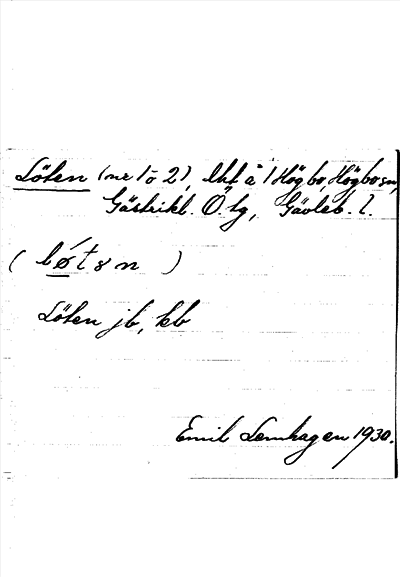 Löten (nr 1 o 2), lht å 1 Högbo, Högbo sn,
Gästrikl. Ö. tg, Gävleb. l.
( løt ȣ n )
Löten jb, kb
Emil Lemhagen 1930.